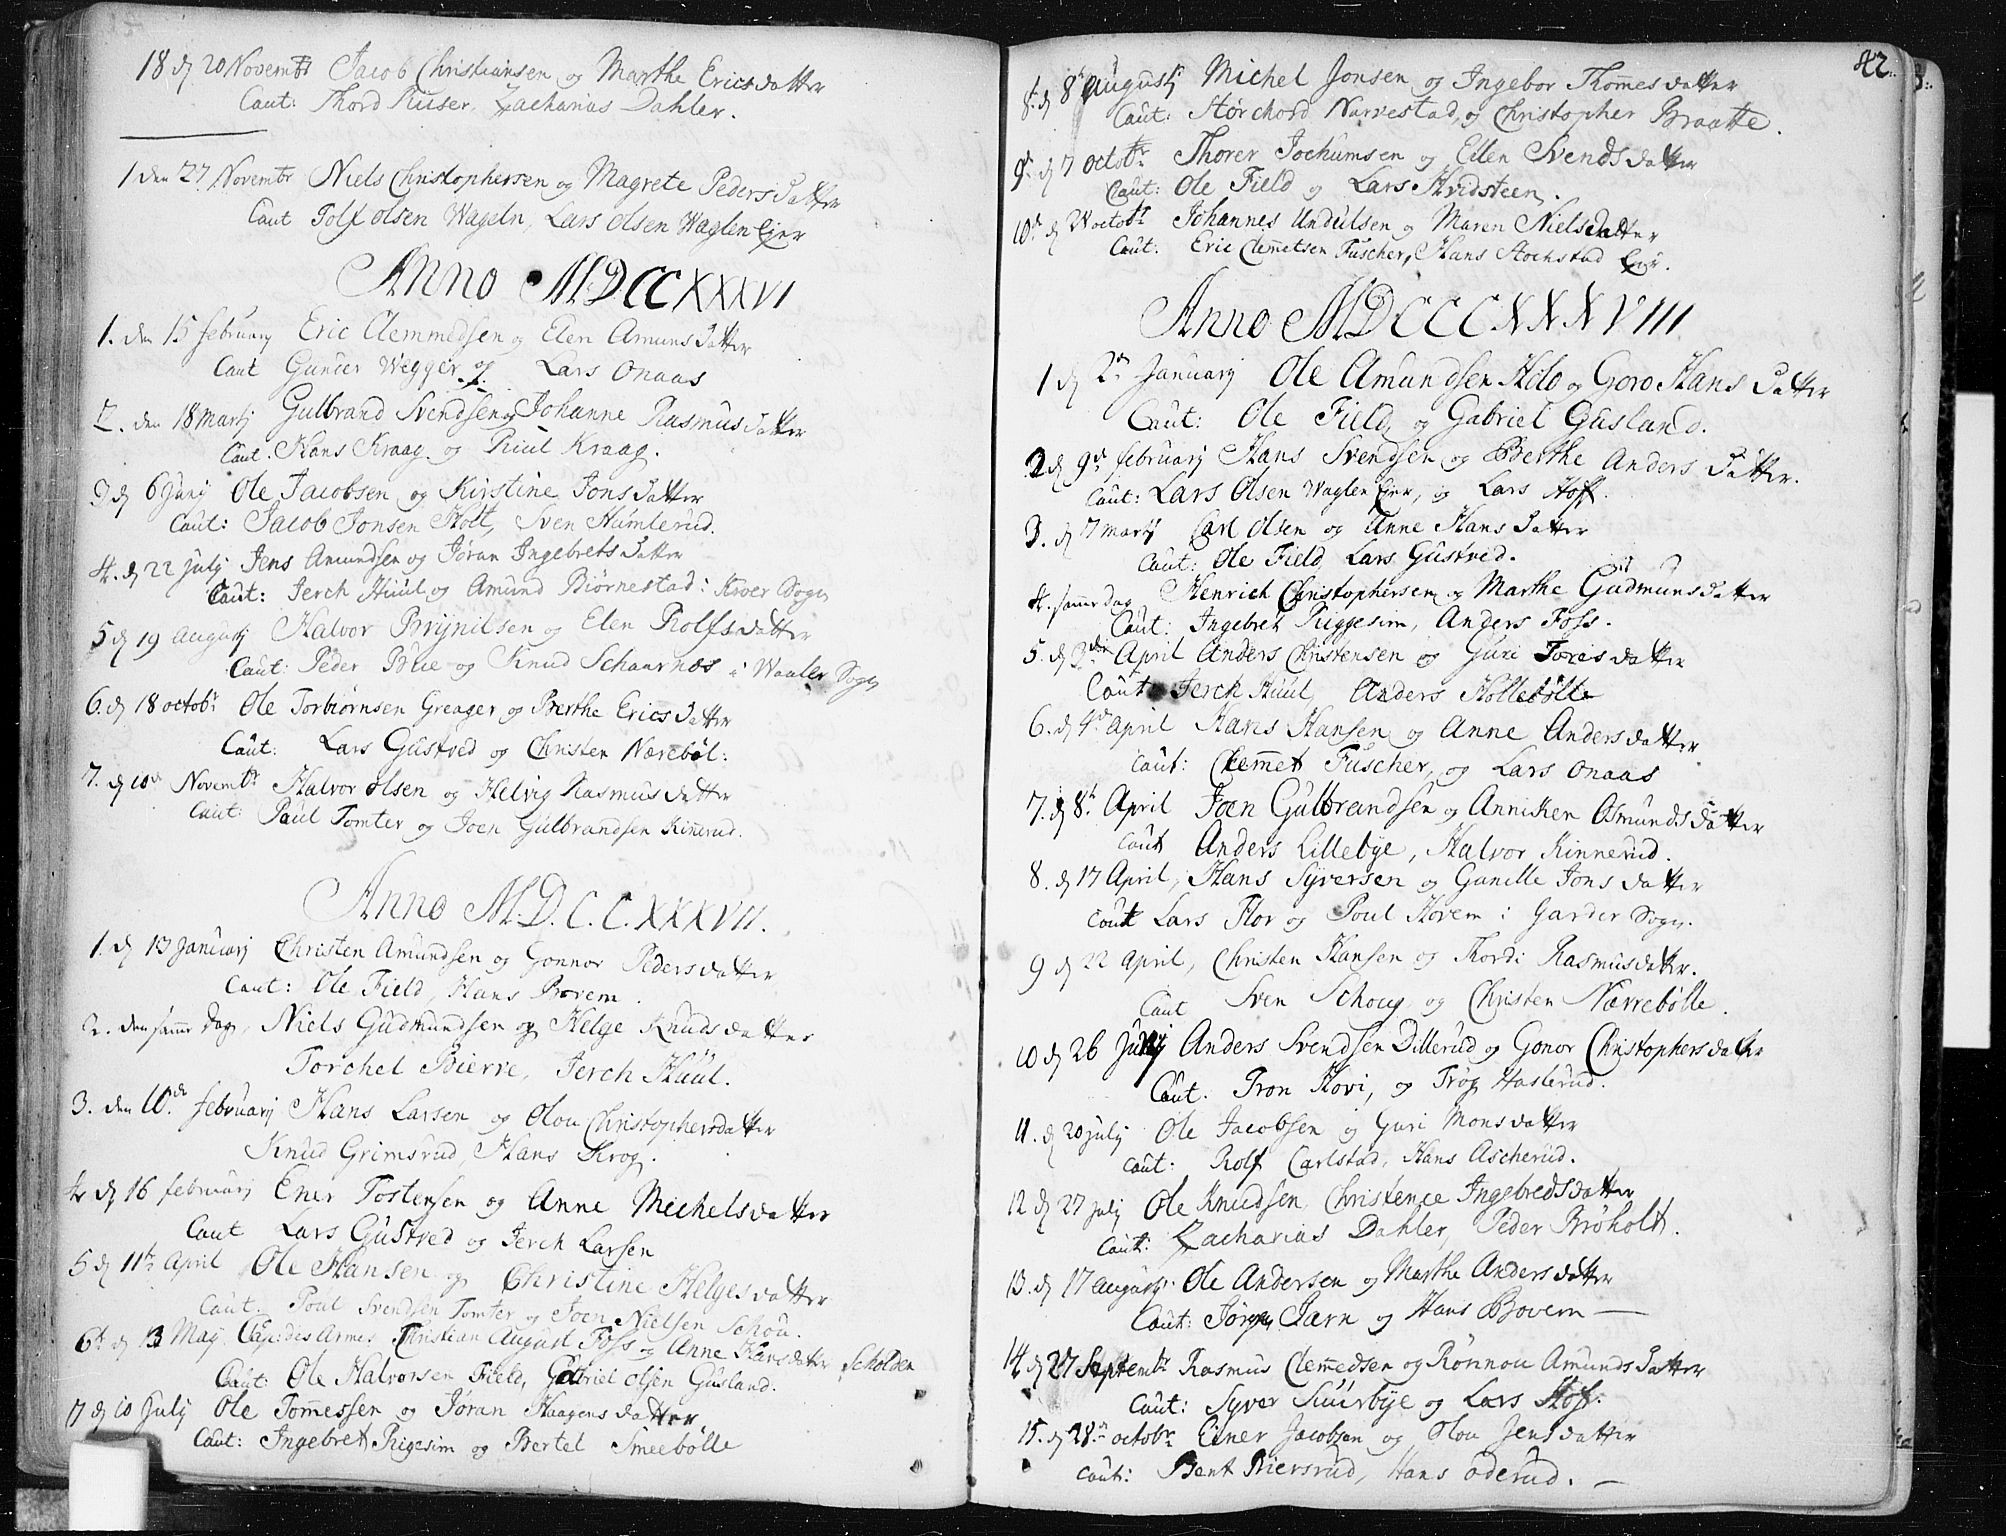 18 dj 20 Novembr Jacob Christiansen og Marthe Ericsdatter
Caut: Thord Ruser, Zacharias Dahler.
1 den 27 Novembr Niels Christophersen og Magrete Pedersdatter
Caut Tolf olsen Wageln, Lars olsen Waglen Ejer
Anno MDCCXXXVI
1. den 15 februarj Eric Clemmedsen og Elen Amunsdatter
Caut Gunder Wegger og Lars Onaas
2. den 18 Martj Gulbrand Svendsen og Johanne Rasmusdatter
Caut. Hans Kraag og Poul Kraag.
3 dj 6 Junj Ole Jacobsen og Kirstine Jonsdatter
Caut: Jacob Jonsen Holt, Sven Humlerud.
4. dj 22 julj Jens Amundsen og Jøran Ingebretsdatter
Caut: Jerch Huul og Amund Biørnestad i Kroer Sogn
5 dj 19 Augustj Halvor Brynilsen og Elen Rolfsdatter
Caut: Peder Bue og Knud Schaarnes i Waaler Sogn
6. dj 18 octobr Ole Torbiørnsen Greager og Berthe Ericsdatter
Caut: Lars Gustved og Christen Nærebøl:
7. dj 10de Novembr Halvor olsen og Helvig Rasmusdatter
Caut: Paul Tomter og Joen Gulbrandsen Kinerud.
Anno M.D.C.C.XXXVII.
1. dj 13 Januarj Christen Amundsen og Gonnor Pedersdatter
Caut: Ole Field, Hans Bovem.
2. den samme Dag, Niels Gudmundsen og Helge Knudsdatter
Torchel Bierre, Jerch Huul.
3. den 10de februarj Hans Larsen og Olou Christophersdatter
Knud Grimsrud, Hans Krog.
4 dj 16 februarj Ener Tostensen og Anne Michelsdatter
Caut Lars Gustved og Jerch Larsen
5 dj 11te April Ole Hansen og Christine Helgesdatter
Caut. Poul Svendsen Tomter og Joen Nielsen Schou.
6t dj 13 May Cap: des Armes Christian August Foss og Anne Hansdatter Scholden
Caut: Ole Halvorsen Field, Gabriel olsen Gusland.
7 dj 10 Julj Ole Tomessen og Jøran Haagensdatter.
Caut: Ingebret Rigesim og Bertel Smeebølle
42.
8t. dj 8t Augustj Michel Jonsen og Ingebor Thomesdatter
Caut: Storchord Narvestad, og Christopher Braatte.
9de dj 7 octobr Thorer Jochumsen og Ellen Svendsdatter
Caut: Ole Field og Lars Hvidsteen.
10de dj 24 octobr Johannes Undulsen og Maren Nielsdatter
Caut: Eric Clemetsen Fuscher, Hans Hochstad Ejer.
Anno MDCCCXXXVIII
1 dj 2de Januarj Ole Amundsen Holo og Goro Hansdatter
Caut: Ole Field, og Gabriel Gusland.
2 dj 9de februarj Hans Svendsen og Berthe Andersdatter.
Caut: Lars Olsen Waglen Ejer, og Lars Hoff.
3. dj 7 Martj Carl olsen og Anne Hansdatter
Caut: Ole Field, Lars Gustved.
4. samme dag Henrich Christophersen og Marthe Gudmunsdatter
Caut: Ingebret Riggesim, Anders Foss.
5. dj 3die April Anders Christensen og Guri Toresdatter
Caut Jerch Huul, Anders Hollebølle
6. dj 4de April Hans Hansen og Anne Andersdatter
Caut: Clemmet Fuscher, og Lars Onaas
7. dj 8t. April Joen Gulbrandsen og Anniken Osmundsdatter
Caut Anders Lillebye, Halvor Kinnerud.
8. dj 17 April, Hans Syversen og Gunille Jonsdatter
Caut Lars Flor og Poul Hovem i Garder Sogn.
9 dj 22 April, Christen Hansen og Thordi Rasmusdatter.
Caut Sven Schoug og Christen Nærrebølle.
10 dj 26 Junj Anders Svendsen Dillerud og Gonor Christophersdatter
Caut. Tron Hovi, og Trög Haslerud.
11. dj 20 julj Ole Jacobsen og Guri Monsdatter
Caut: Rolf Carlstad, Hans Ascherud.
12 dj 27 julj Ole Knudsen, Christence Ingebredsdatter
Caut: Zacharias Dahler, Peder Brøholt.
13. dj 17 Augustj Ole Andersen og Marthe Andersdatter
Caut: Jørgen Jarn og Hans Bovem —
14 dj 27 Septembr Rasmus Clemedsen og Rønnou Amundsdatter
Caut: Syver Suursbye og Lars Hof.
15. dj 28de octobr Einer Jacobsen og Olou Jensdatter
Caut: Bent Biersrud, Hans oderud. —